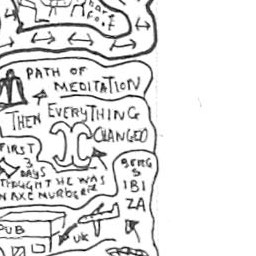 PATH OF
MEDITATION
THEN EVERYTHING
CHANGED
FIRST
3
DAYS
THOUGHT HE WAS
AN AXE MURDERER
BERG
S
IBI
ZA
PUB
UK